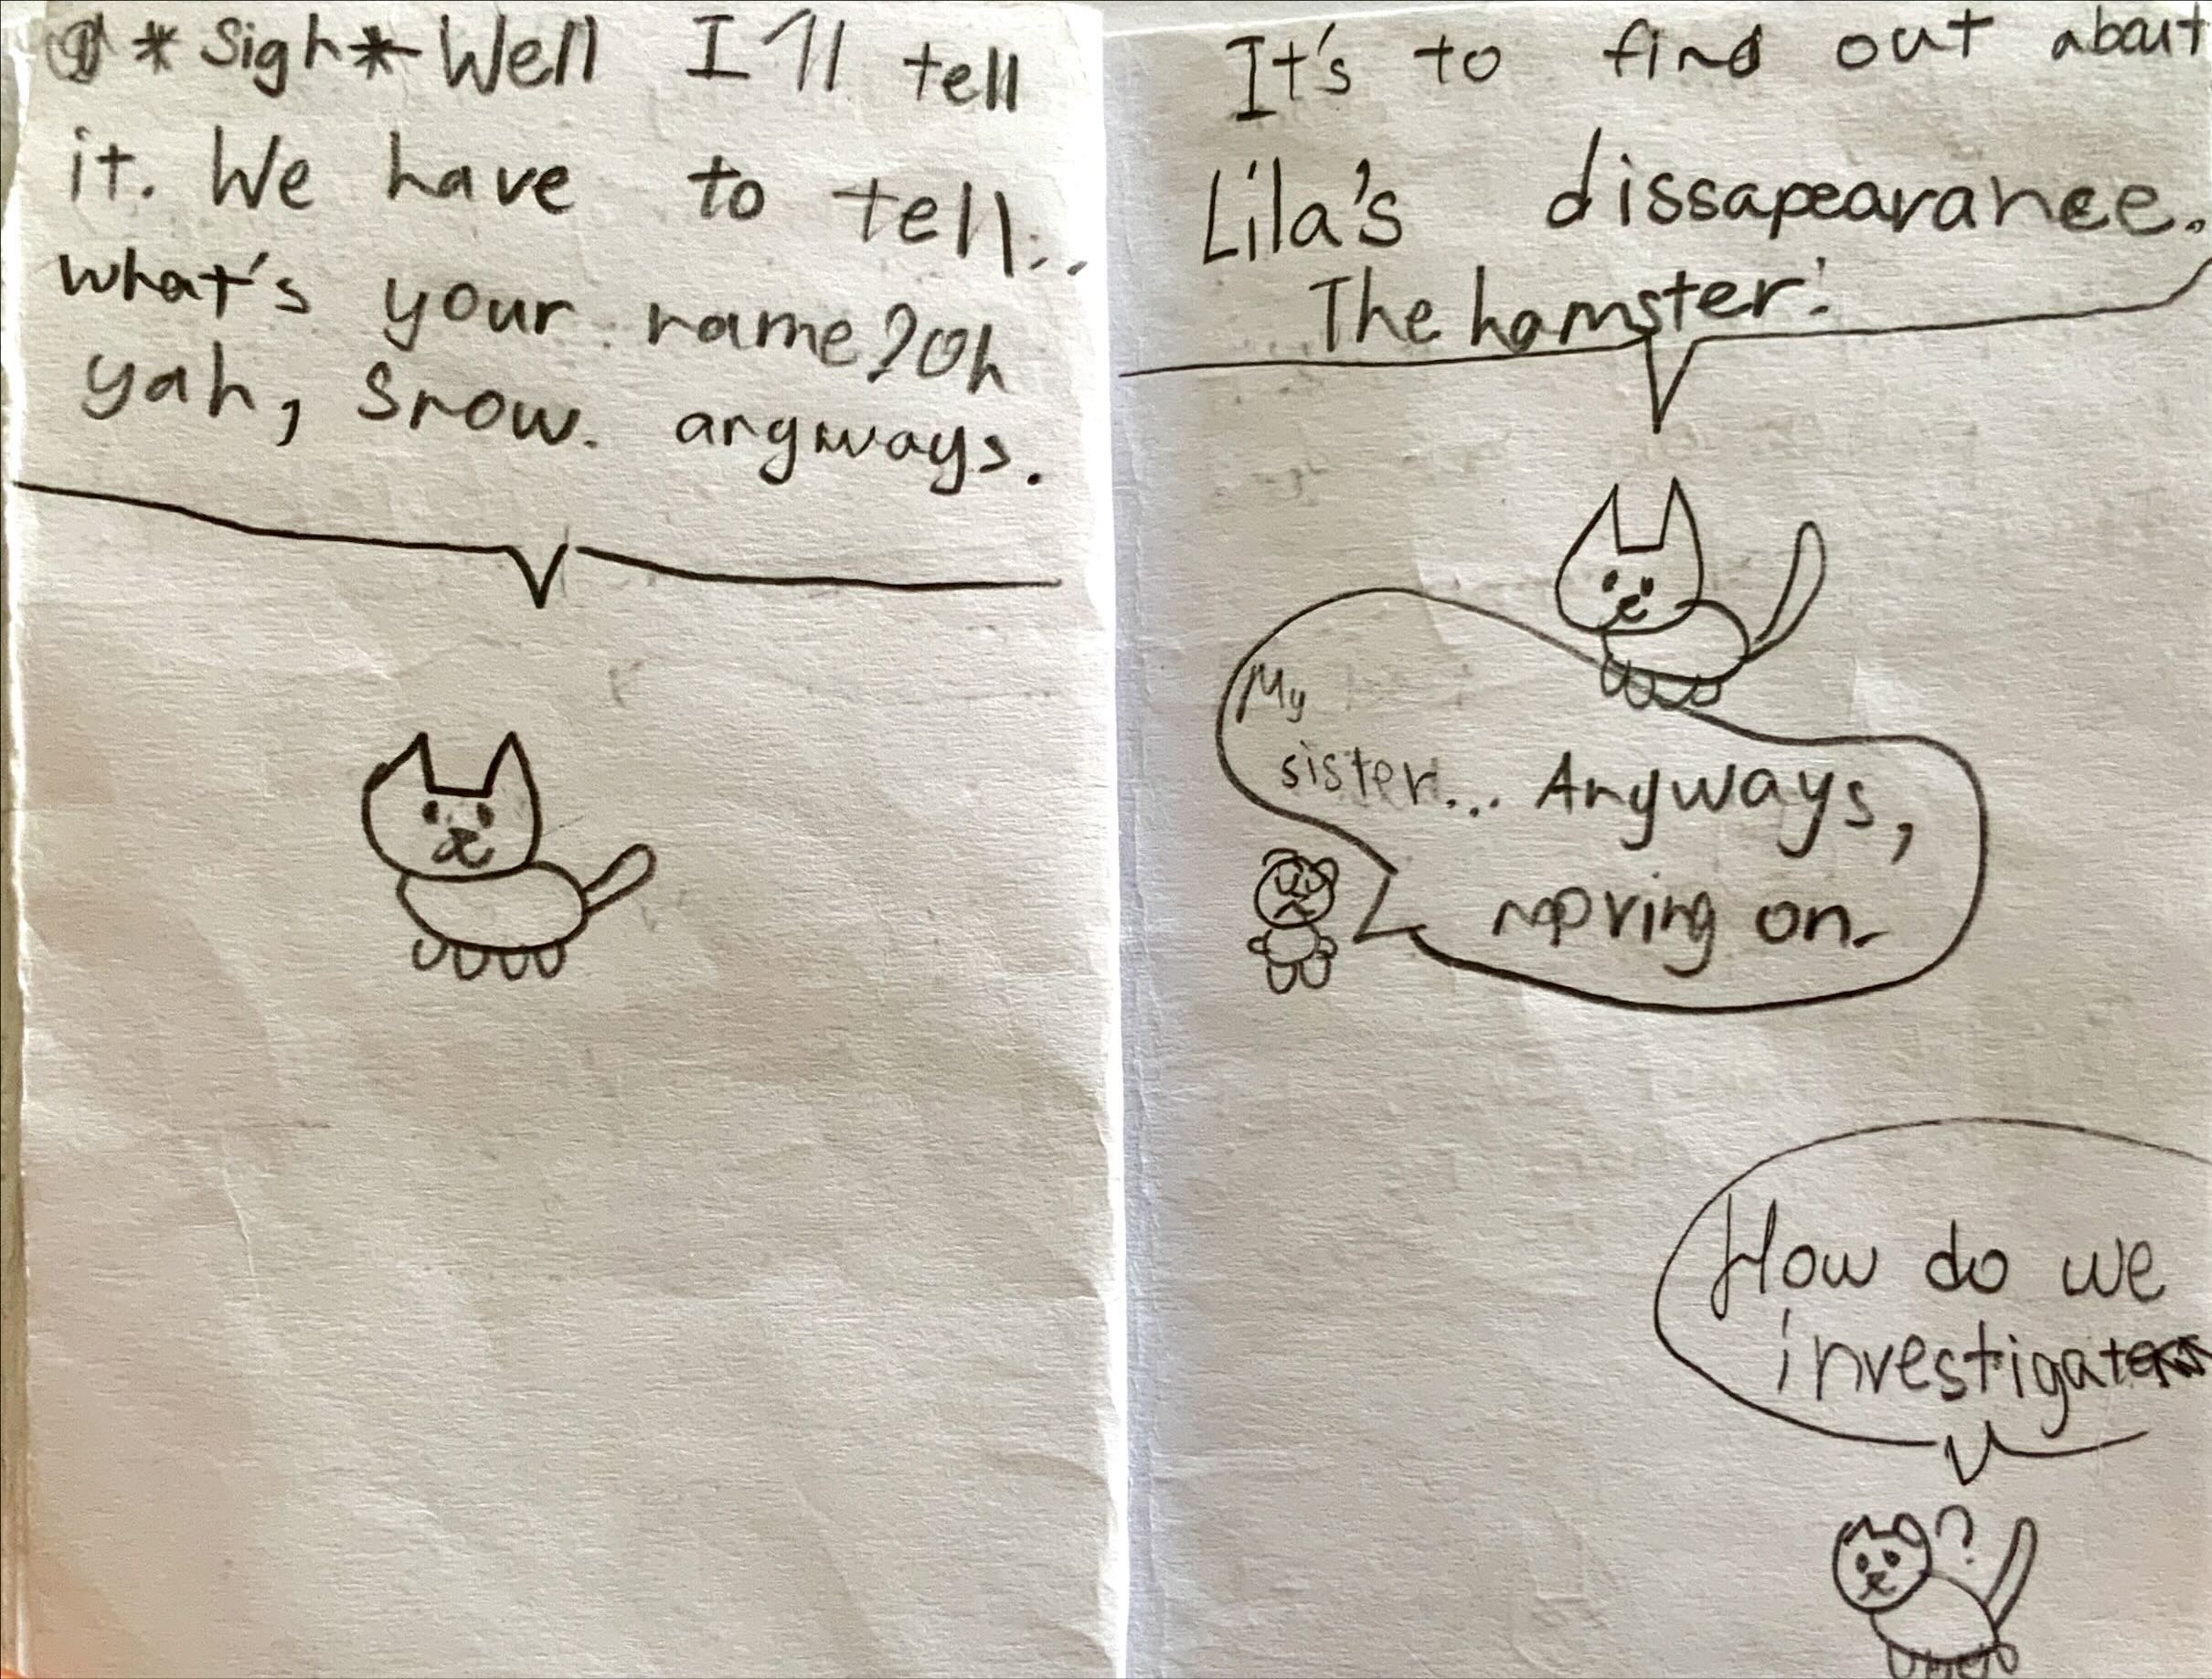 *sigh* Well I'll tell
it. We have to tell..
what's your name? Oh
yah, Snow. anyways.
It's to find out about
Lila's dissapearance.
The hamster!
My
sister... Anyways,
moving on.
How do we
investigate
?